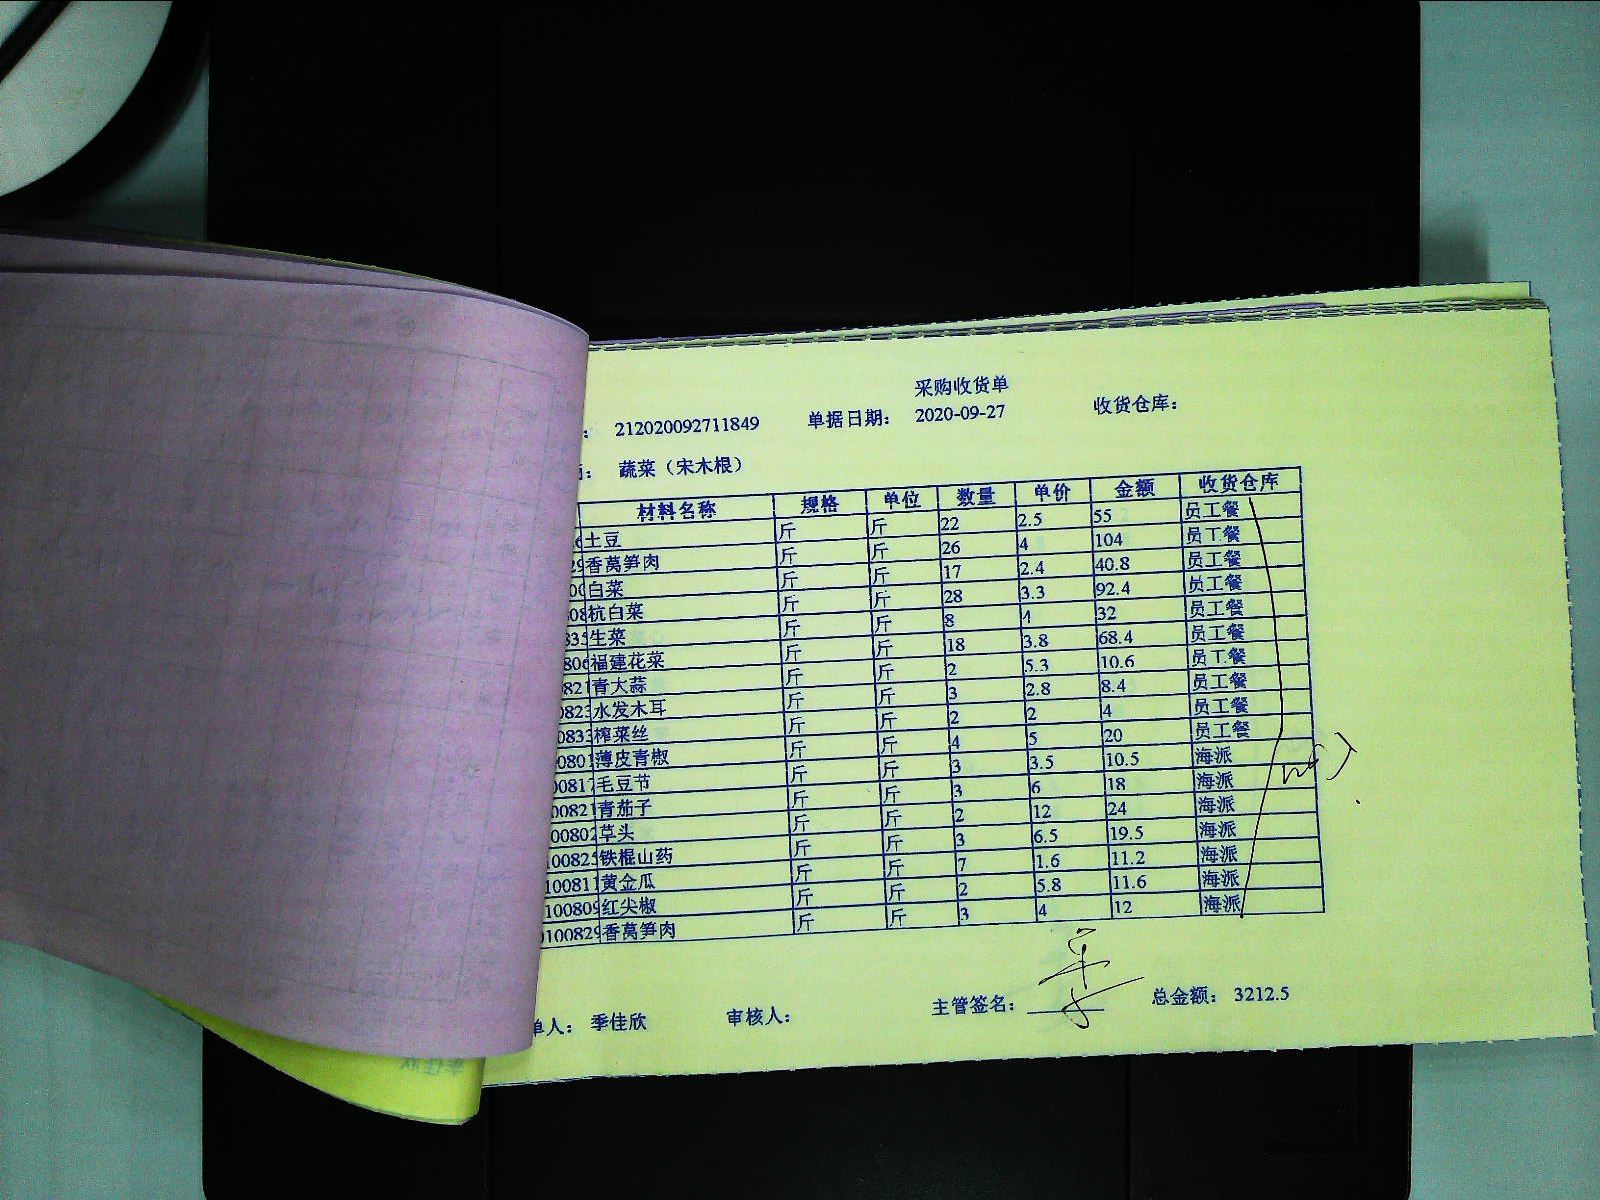 采购收货单
: 212020092711849 单据日期: 2020-09-27 收货仓库:
: 蔬菜（宋木根）
材料名称 规格 单位 数量 单价 金额 收货仓库
6 土豆 斤 斤 22 2.5 55 员工餐
29 香莴笋肉 斤 斤 26 4 104 员工餐
00 白菜 斤 斤 17 2.4 40.8 员工餐
08 杭白菜 斤 斤 28 3.3 92.4 员工餐
835 生菜 斤 斤 8 4 32 员工餐
806 福建花菜 斤 斤 18 3.8 68.4 员工餐
0821 青大蒜 斤 斤 2 5.3 10.6 员工餐
0823 水发木耳 斤 斤 3 2.8 8.4 员工餐
0833 榨菜丝 斤 斤 2 2 4 员工餐
00801 薄皮青椒 斤 斤 4 5 20 员工餐
00817 毛豆节 斤 斤 3 3.5 10.5 海派
00821 青茄子 斤 斤 3 6 18 海派
00802 草头 斤 斤 2 12 24 海派
100825 铁棍山药 斤 斤 3 6.5 19.5 海派
100811 黄金瓜 斤 斤 7 1.6 11.2 海派
100809 红尖椒 斤 斤 2 5.8 11.6 海派
0100829 香莴笋肉 斤 斤 3 4 12 海派
单人: 季佳欣 审核人: 主管签名: 总金额: 3212.5